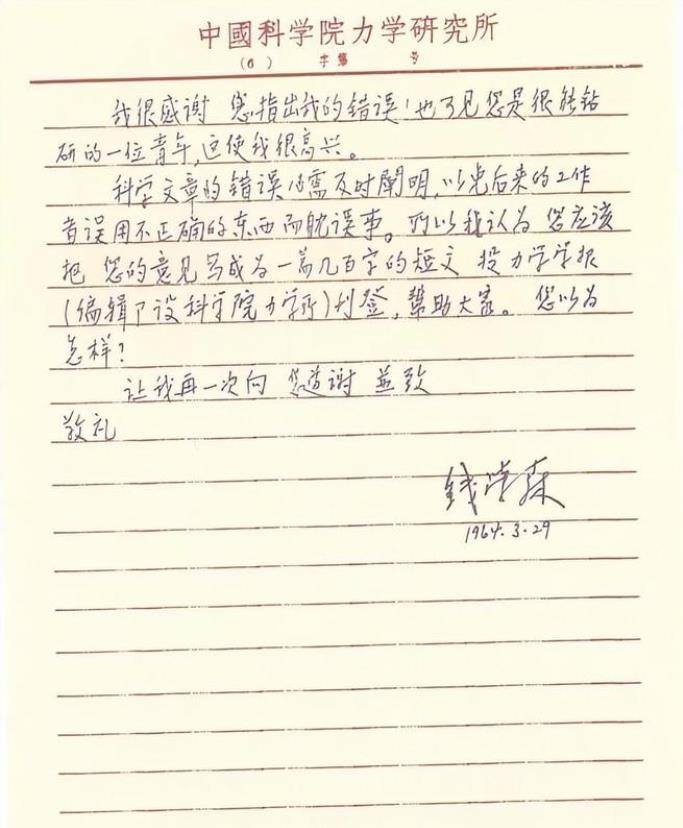 中國科学院力学研究所
(6) 字第 号
我很感谢 您指出我的错误！也可见您是很能钻
研的一位青年，这使我很高兴。
科学文章的错误必需及时阐明，以免后来的工作
者误用不正确的东西而耽误事。所以我认为 您应该
把 您的意见写成为一篇几百字的短文 投力学学报
(编辑部设科学院力学所)刊登，帮助大家。 您以为
怎样？
让我再一次向 您道谢 並致
敬礼
钱学森
1964.3.29